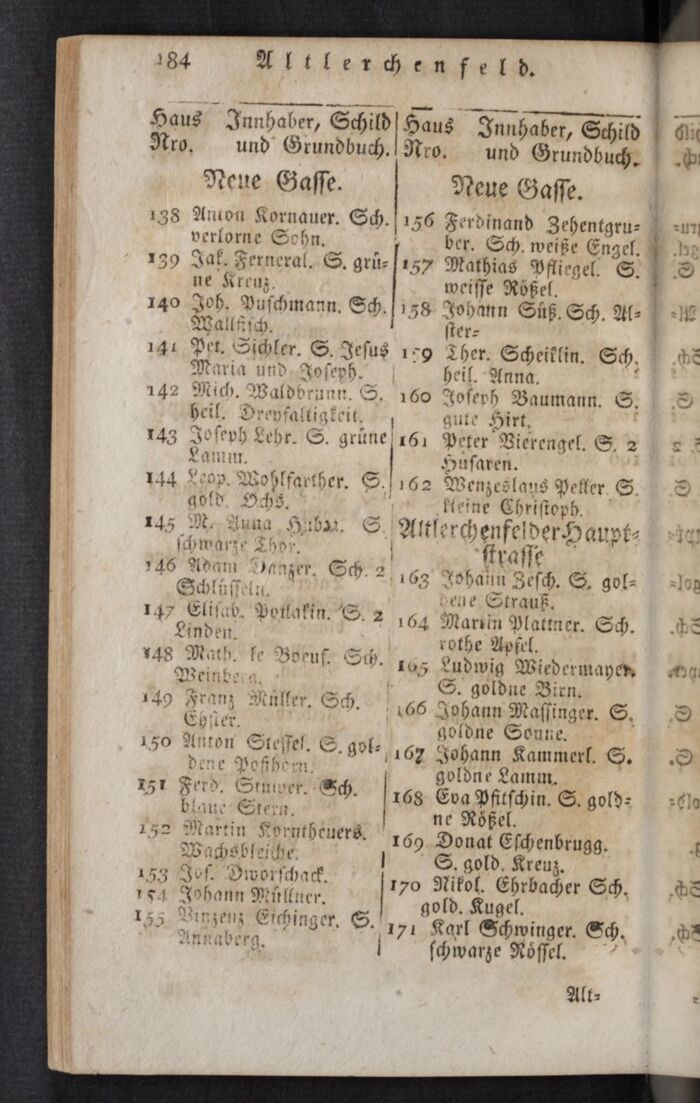 184 Altlerchenfeld.
Haus Innhaber, Schild
Nro. und Grundbuch.
Neue Gasse.
138 Anton Kornauer. Sch.
verlorne Sohn.
139 Jak. Ferneral. S. grü-
ne Kreuz.
140 Joh. Puschmann. Sch.
Wallfisch.
141 Pet. Sichler. S. Jesus
Maria und Joseph.
142 Mich. Waldbrunn. S.
heil. Dreyfaltigkeit.
143 Joseph Lehr. S. grüne
Lamm.
144 Leop. Wohlfarther. S.
gold. Ochs.
145 M. Anna Huber. S.
schwarze Thor.
146 Adam Danzer. Sch. 2
Schlüsseln.
147 Elisab. Potlakin. S. 2
Linden.
148 Math. le Boeuf. Sch.
Weinberg.
149 Franz Müller. Sch.
150 Anton Steffel. S. gol-
dene Posthorn.
151 Ferd. Stuwer. Sch.
blaue Stern.
152 Martin Korntheuers.
Wachsbleiche.
153 Jos. Dworschack.
154 Johann Müllner.
155 Vinzenz Eichinger. S.
Annaberg.
Haus Innhaber, Schild
Nro. und Grundbuch.
Neue Gasse.
156 Ferdinand Zehentgru-
ber. Sch. weiße Engel.
157 Mathias Pfliegel. S.
weisse Rößel.
158 Johann Süß. Sch. Al-
ster-
159 Ther. Scheiklin. Sch.
heil. Anna.
160 Joseph Baumann. S.
gute Hirt.
161 Peter Vierengel. S. 2
Husaren.
162 Wenzeslaus Peller. S.
kleine Christoph.
Altlerchenfelder Haupt-
strasse
163 Johann Zesch. S. gol-
dene Strauß.
164 Martin Plattner. Sch.
rothe Apfel.
165 Ludwig Wiedermayer.
S. goldne Birn.
166 Johann Massinger. S.
goldne Sonne.
167 Johann Kammerl. S.
goldne Lamm.
168 Eva Pfitschin. S. gold-
ne Rößel.
169 Donat Eschenbrugg.
S. gold. Kreuz.
170 Nikol. Ehrbacher Sch.
gold. Kugel.
171 Karl Schwinger. Sch.
schwarze Rössel.
Alt-